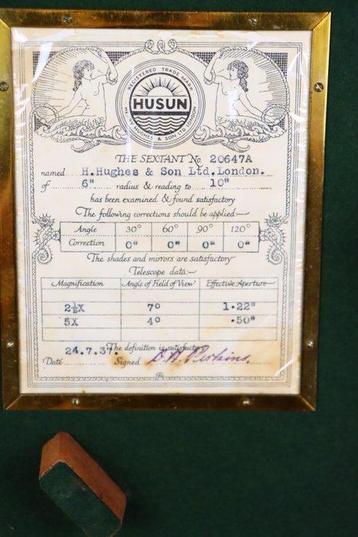 REGISTERED TRADE MARK
HUSUN
H. HUGHES & SON LTD.
THE SEXTANT No. 20647A
named H.Hughes & Son Ltd.London.
of 6" radius & reading to 10"
has been examined & found satisfactory
The following corrections should be applied
Angle 30° 60° 90° 120°
Correction 0" 0" 0" 0"
The shades and mirrors are satisfactory
Telescope data
Magnification Angle of Field of View Effective Aperture
2½X 7° 1.22"
5X 4° .50"
The definition is satisfactory
24.7.37.
Date Signed